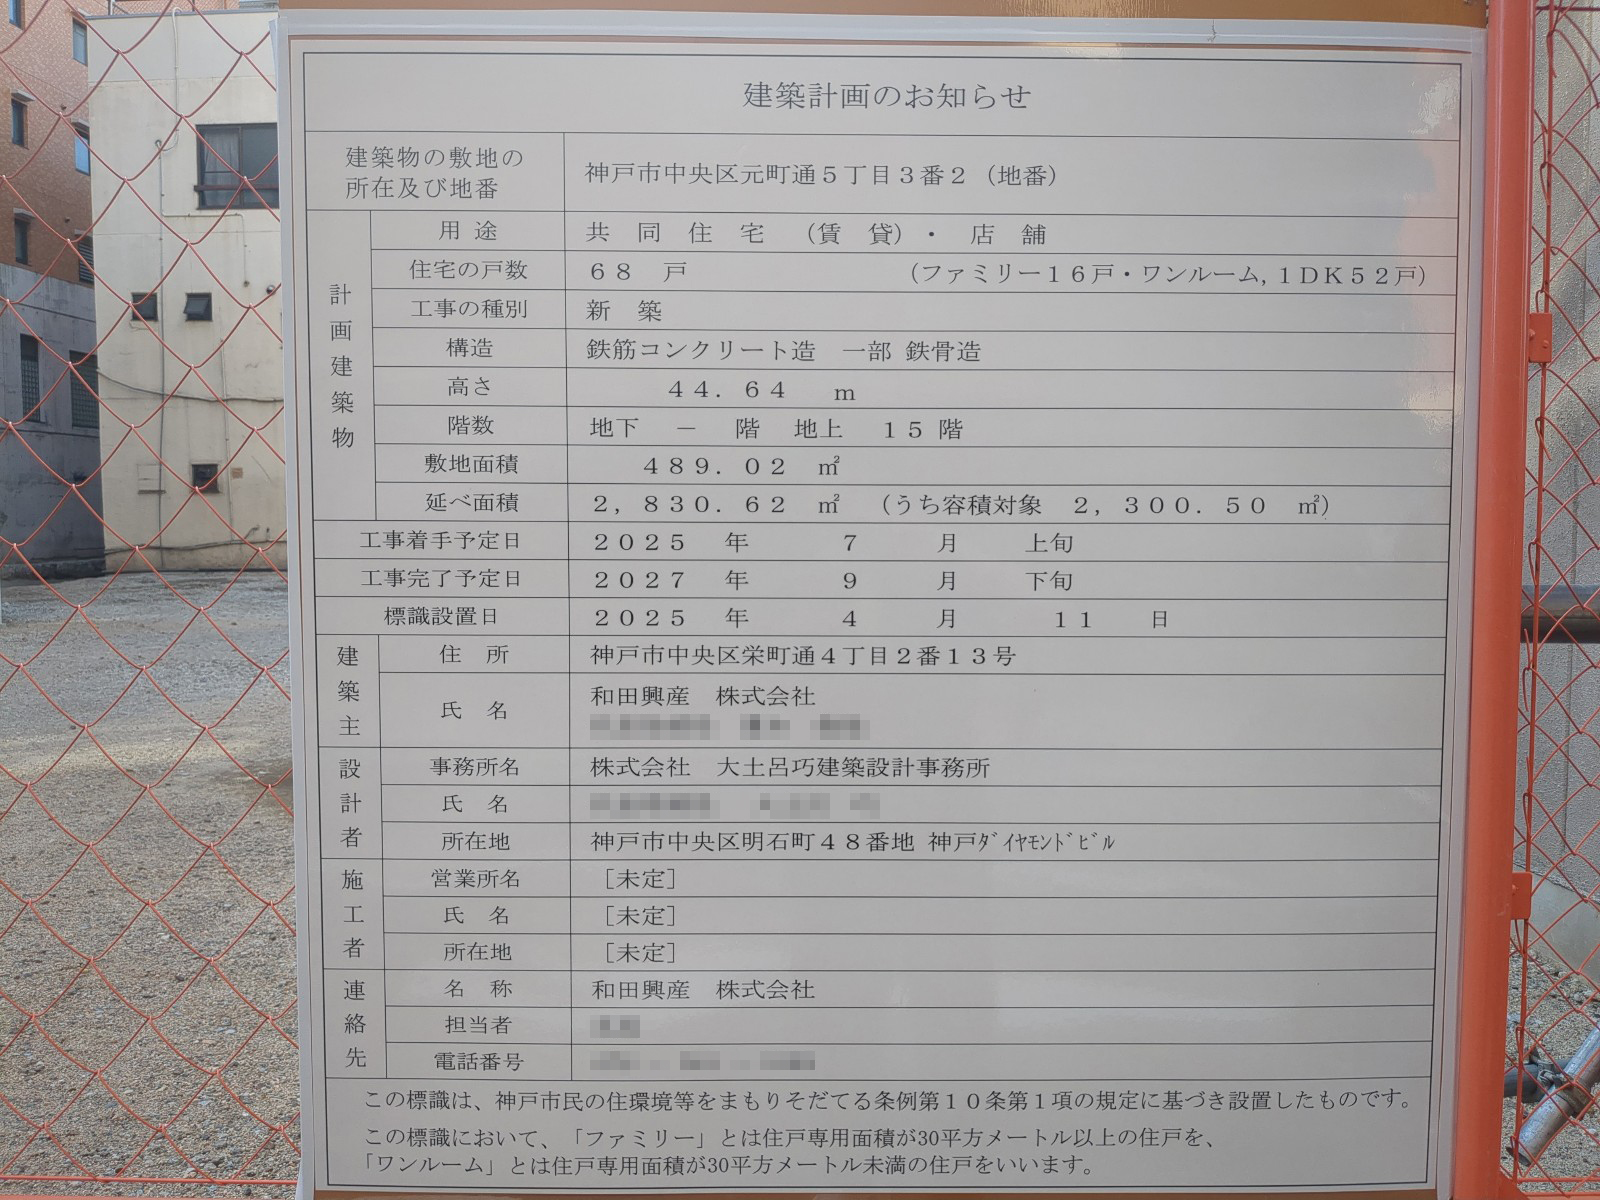 建築計画のお知らせ
建築物の敷地の
所在及び地番
神戸市中央区元町通５丁目３番２（地番）
計画建築物
用途 共同住宅（賃貸）・店舗
住宅の戸数 ６８ 戸 （ファミリー１６戸・ワンルーム,１ＤＫ５２戸）
工事の種別 新築
構造 鉄筋コンクリート造 一部 鉄骨造
高さ ４４．６４ ｍ
階数 地下 － 階 地上 １５ 階
敷地面積 ４８９．０２ ㎡
延べ面積 ２，８３０．６２ ㎡ （うち容積対象 ２，３００．５０ ㎡）
工事着手予定日 ２０２５ 年 ７ 月 上旬
工事完了予定日 ２０２７ 年 ９ 月 下旬
標識設置日 ２０２５ 年 ４ 月 １１ 日
建築主
住所 神戸市中央区栄町通４丁目２番１３号
氏名 和田興産 株式会社
設計者
事務所名 株式会社 大土呂巧建築設計事務所
氏名
所在地 神戸市中央区明石町４８番地 神戸ﾀﾞｲﾔﾓﾝﾄﾞﾋﾞﾙ
施工者
営業所名 ［未定］
氏名 ［未定］
所在地 ［未定］
連絡先
名称 和田興産 株式会社
担当者
電話番号
この標識は、神戸市民の住環境等をまもりそだてる条例第１０条第１項の規定に基づき設置したものです。
この標識において、「ファミリー」とは住戸専用面積が30平方メートル以上の住戸を、
「ワンルーム」とは住戸専用面積が30平方メートル未満の住戸をいいます。